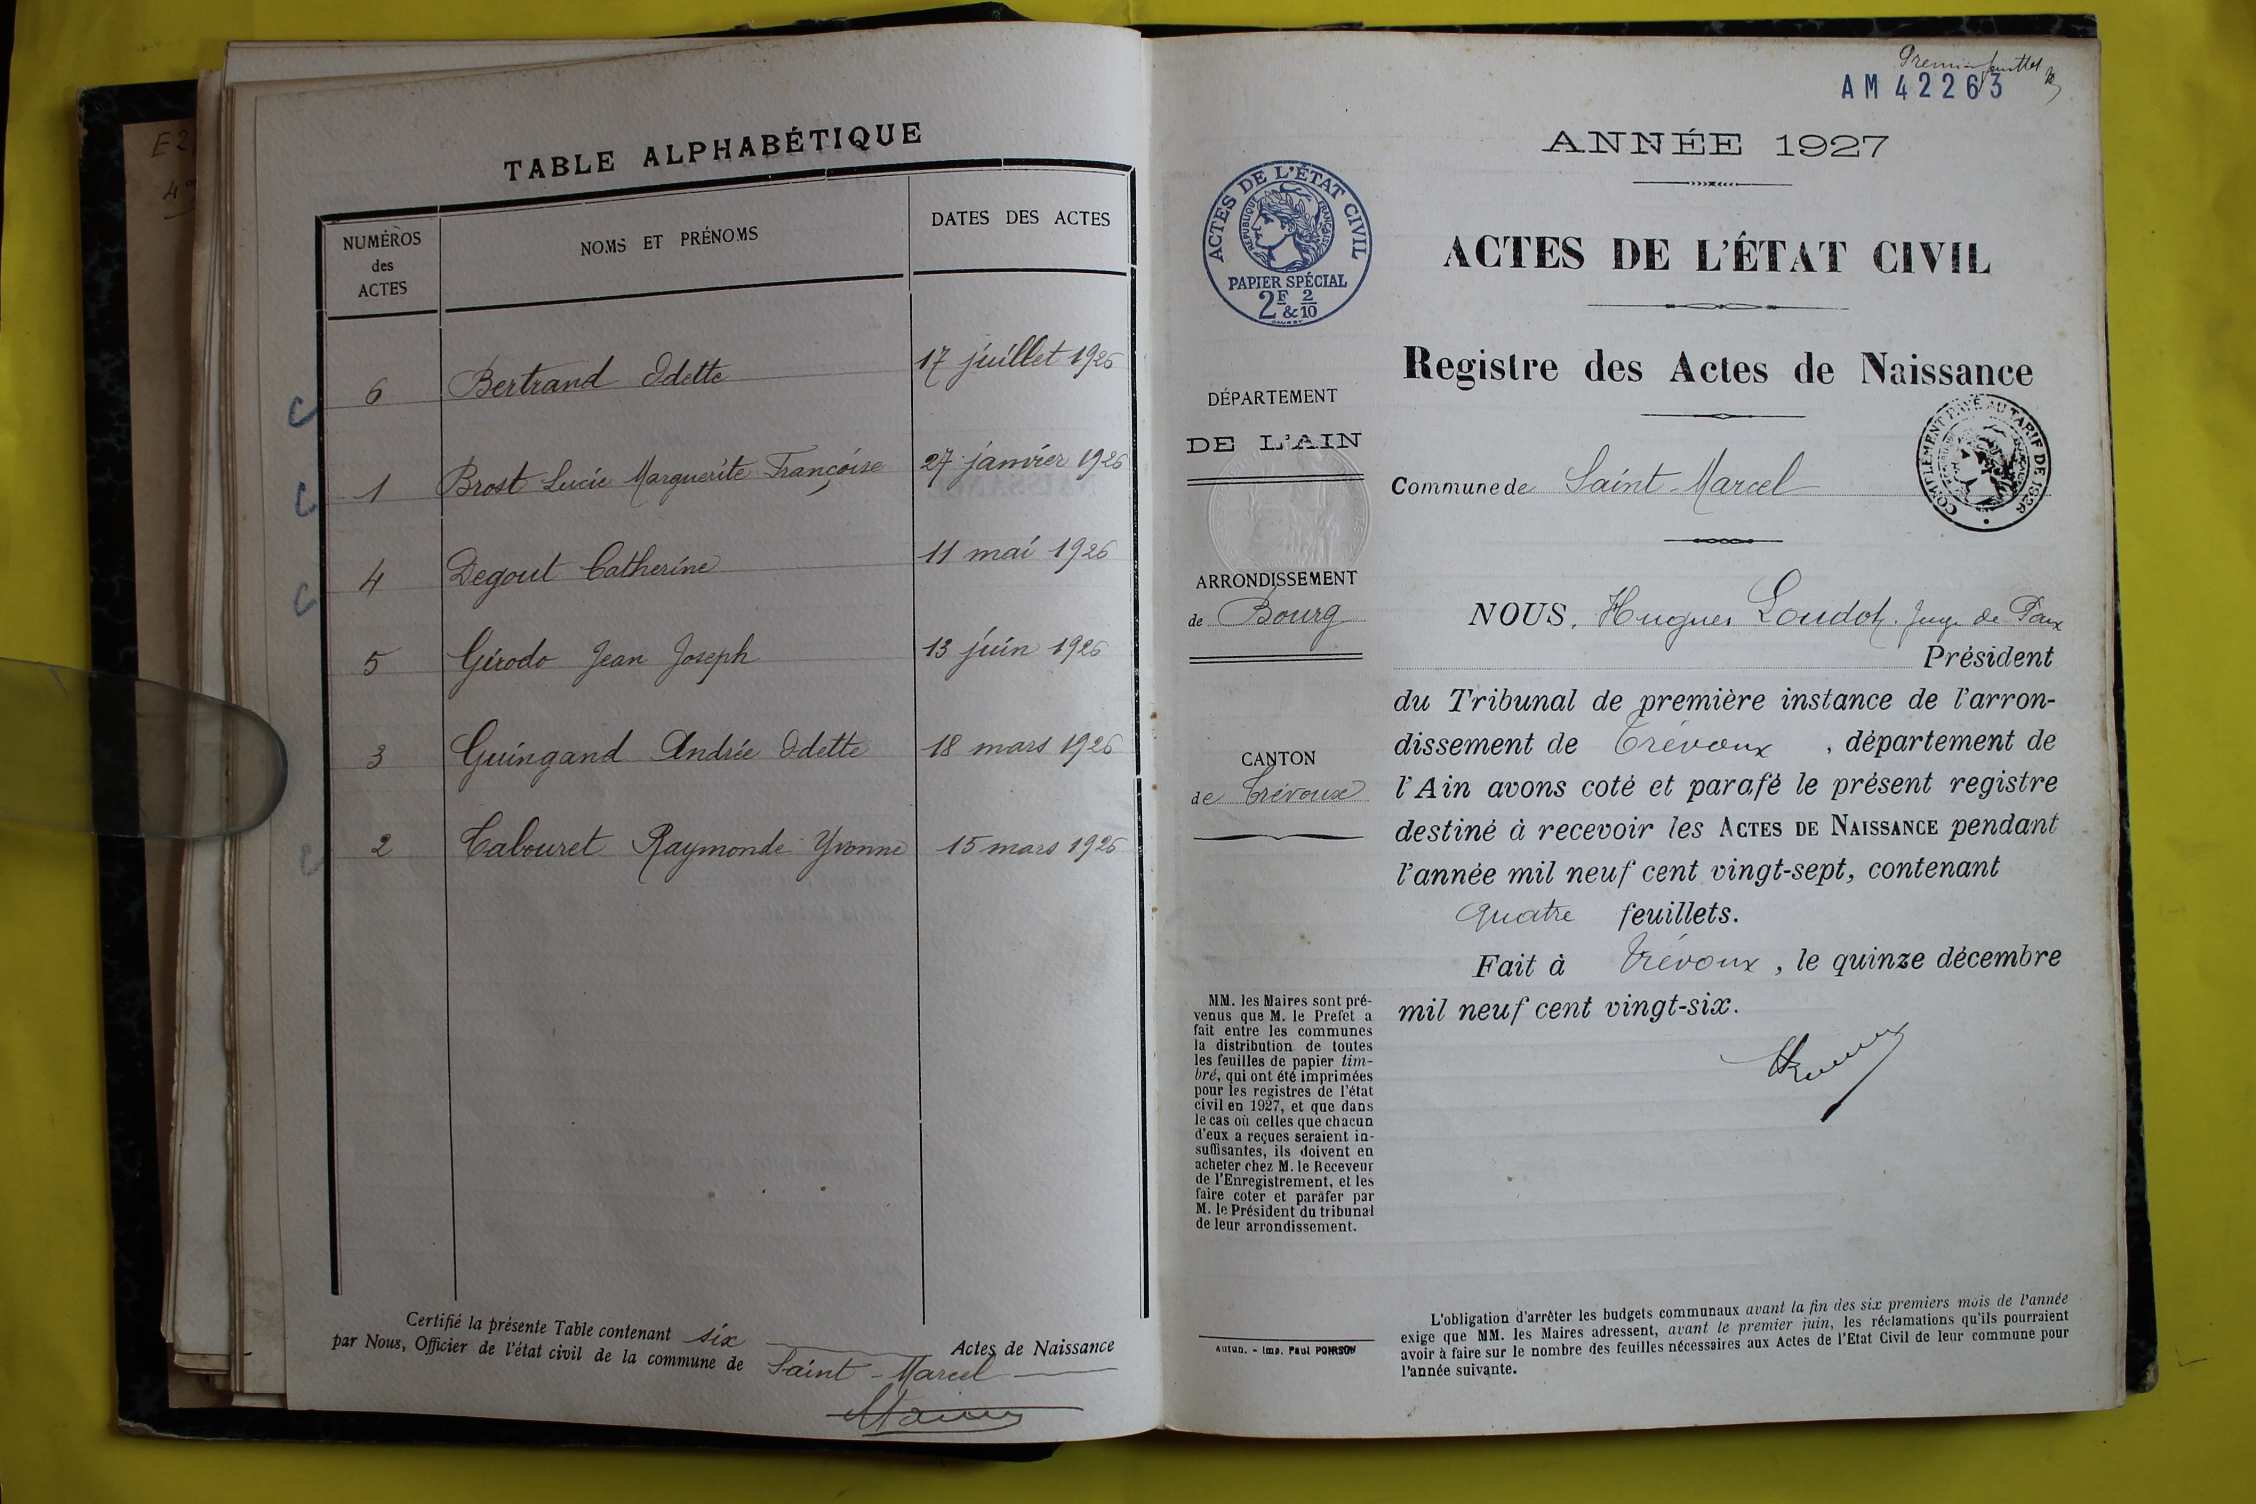 E 2
TABLE ALPHABÉTIQUE
NUMÉROS des ACTES
NOMS ET PRÉNOMS
DATES DES ACTES
6 Bertrand Odette 17 juillet 1926
1 Brost Lucie Marguerite Françoise 27 janvier 1926
4 Degout Catherine 11 mai 1926
5 Gérodo Jean Joseph 13 juin 1926
3 Guingand Andrée Odette 18 mars 1926
2 Tabouret Raymonde Yvonne 15 mars 1926
Certifié la présente Table contenant six Actes de Naissance
par Nous, Officier de l'état civil de la commune de Saint-Marcel
Premier feuillet
AM 42263
ANNÉE 1927
ACTES DE L'ÉTAT CIVIL
RÉPUBLIQUE FRANÇAISE
PAPIER SPÉCIAL
2F & 2/10
ACTES DE L'ÉTAT CIVIL
Registre des Actes de Naissance
DÉPARTEMENT
DE L'AIN
COMPLÉMENT PAYÉ AU TARIF DE 1926
Commune de Saint-Marcel
ARRONDISSEMENT
de Bourg
CANTON
de Trévoux
NOUS, Hugues Loudot, Juge de Paix
Président
du Tribunal de première instance de l'arron-
dissement de Trévoux, département de
l'Ain avons coté et parafé le présent registre
destiné à recevoir les ACTES DE NAISSANCE pendant
l'année mil neuf cent vingt-sept, contenant
quatre feuillets.
Fait à Trévoux, le quinze décembre
mil neuf cent vingt-six.
MM. les Maires sont pré-
venus que M. le Prefet a
fait entre les communes
la distribution de toutes
les feuilles de papier tim-
bré, qui ont été imprimées
pour les registres de l'état
civil en 1927, et que dans
le cas où celles que chacun
d'eux a reçues seraient in-
suffisantes, ils doivent en
acheter chez M. le Receveur
de l'Enregistrement, et les
faire coter et parafer par
M. le Président du tribunal
de leur arrondissement.
Autun. - Imp. Paul POIRSON
L'obligation d'arrêter les budgets communaux avant la fin des six premiers mois de l'année
exige que MM. les Maires adressent, avant le premier juin, les réclamations qu'ils pourraient
avoir à faire sur le nombre des feuilles nécessaires aux Actes de l'Etat Civil de leur commune pour
l'année suivante.